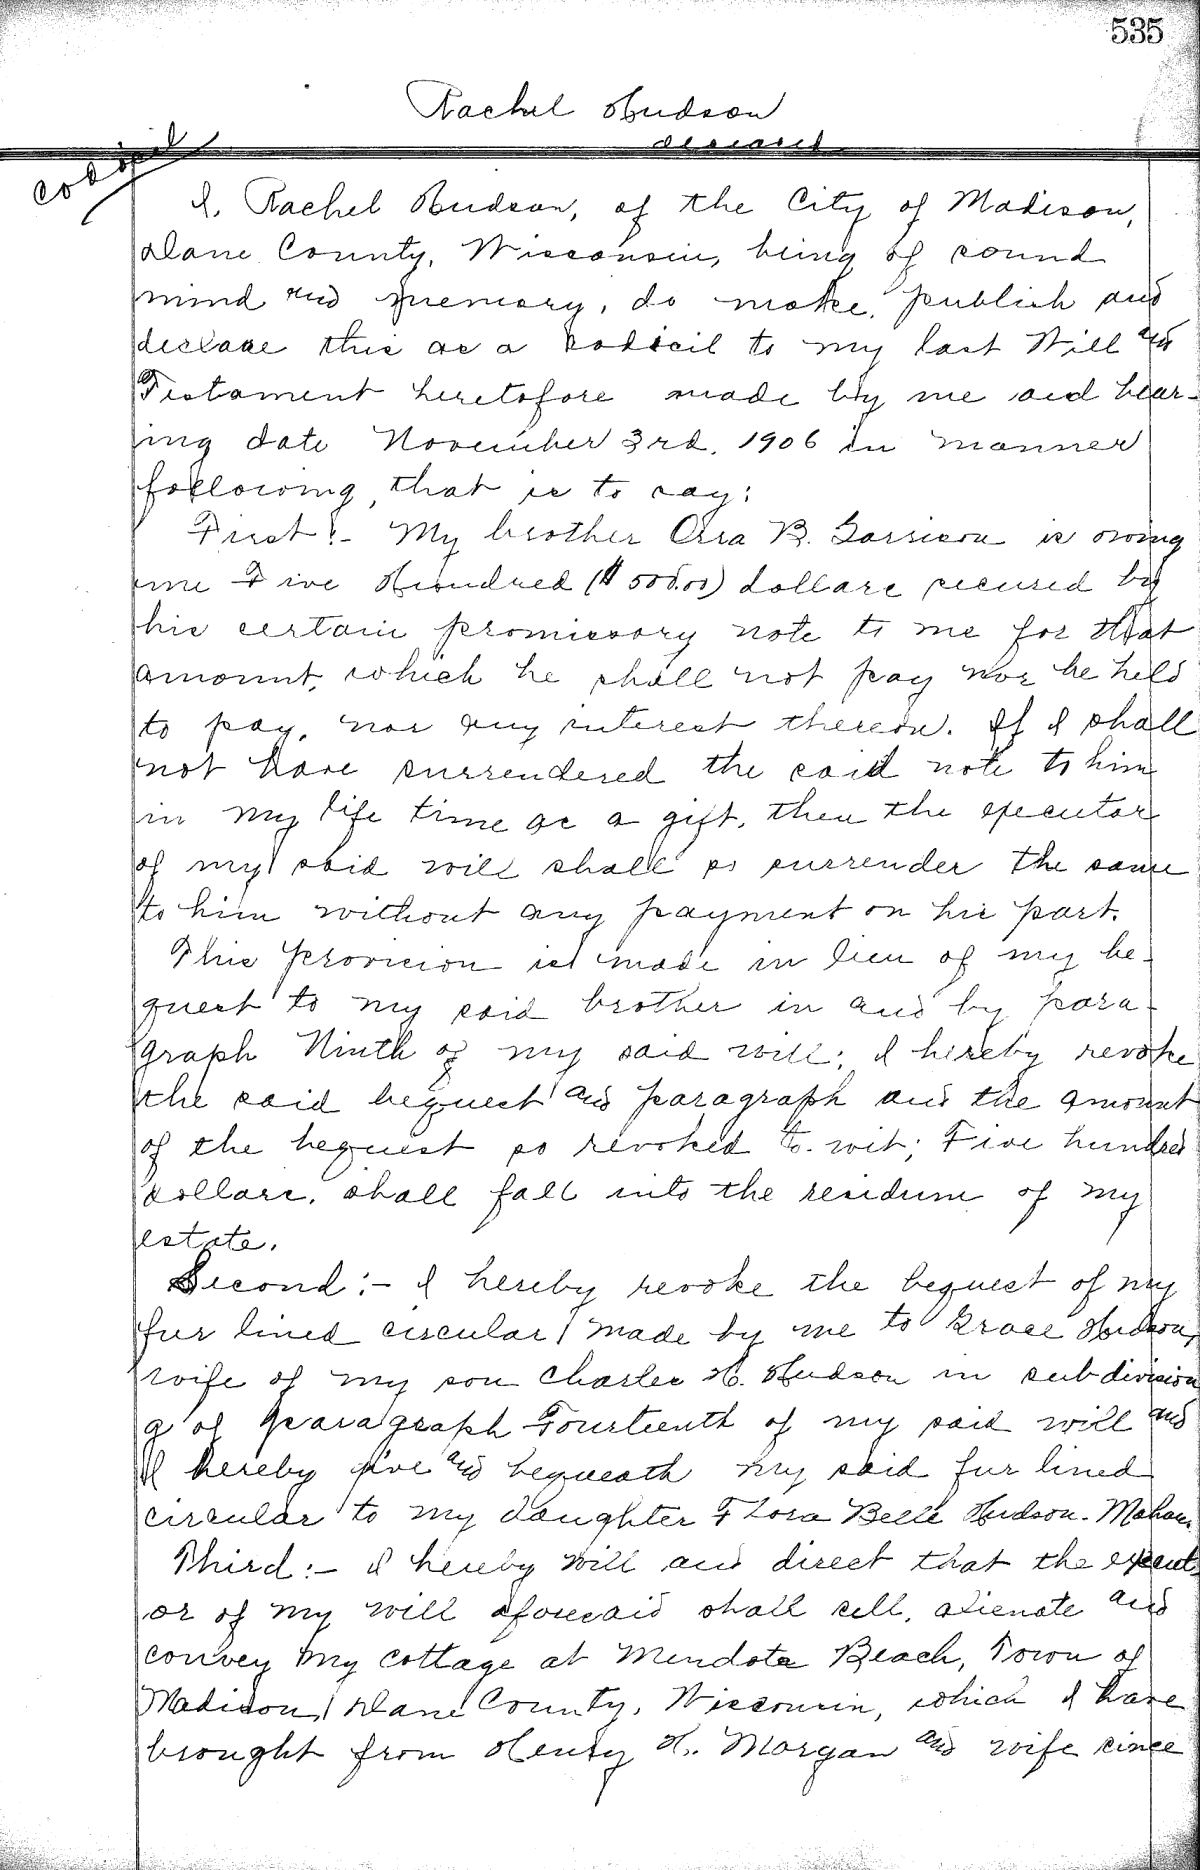 535
Rachel Hudson
deceased
codicil
I, Rachel Hudson, of the City of Madison,
Dane County, Wisconsin, being of sound
mind and memory, do make, publish and
declare this as a codicil to my last Will and
Testament heretofore made by me and bear-
ing date November 3rd, 1906 in manner
following, that is to say:
First:- My brother Orra B. Garrison is owing
me Five Hundred ($500.00) dollars secured by
his certain promissory note to me for that
amount, which he shall not pay nor be held
to pay, nor any interest thereon. If I shall
not have surrendered the said note to him
in my life time as a gift, then the executor
of my said will shall so surrender the same
to him without any payment on his part.
This provision is made in lieu of my be-
quest to my said brother in and by para-
graph Ninth of my said will; I hereby revoke
the said bequest and paragraph and the amount
of the bequest so revoked to-wit; Five hundred
dollars, shall fall into the residium of my
estate.
Second:- I hereby revoke the bequest of my
fur lined circular made by me to Grace Hudson,
wife of my son Charles H. Hudson in subdivision
g of paragraph Fourteenth of my said will and
I hereby give and bequeath my said fur lined
circular to my daughter Flora Belle Hudson-Mahan.
Third:- I hereby will and direct that the execut-
or of my will aforesaid shall sell, alienate and
convey my cottage at Mendota Beach, Town of
Madison, Dane County, Wisconsin, which I have
brought from Henry H. Morgan and wife since